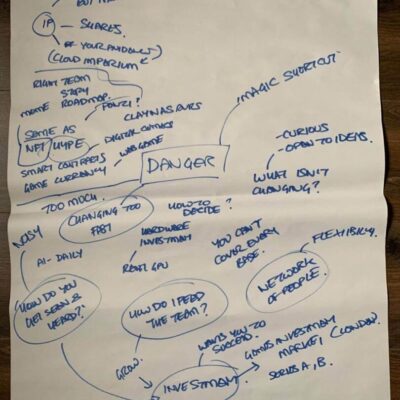 IP
SHARES.
OF YOUR AUDIENCE
(CLOUD IMPERIUM
RIGHT TEAM
STORY
MEME ROADMAP.
PONZI?
CLAYNOSAURS
SAME AS
NFT HYPE
DIGITAL COMICS
SMART CONTRACTS
WEB GAME
GAME CURRENCY
DANGER
MAGIC SHORTCUT
- CURIOUS
- OPEN TO IDEAS.
WHAT ISN'T
CHANGING?
TOO MUCH.
CHANGING TOO
FAST
HOW TO
DECIDE?
NOISY
AI - DAILY
HARDWARE
INVESTMENT
RENT GPU
YOU CAN'T
COVER EVERY
BASE.
FLEXIBILITY.
NETWORK
OF PEOPLE.
HOW DO YOU
GET SEEN &
HEARD?
HOW DO I FEED
THE TEAM?
GROW.
WANTS YOU TO
SUCCEED.
INVESTMENT
GAMES INVESTMENT
MARKET (LONDON.
SERIES A, B.